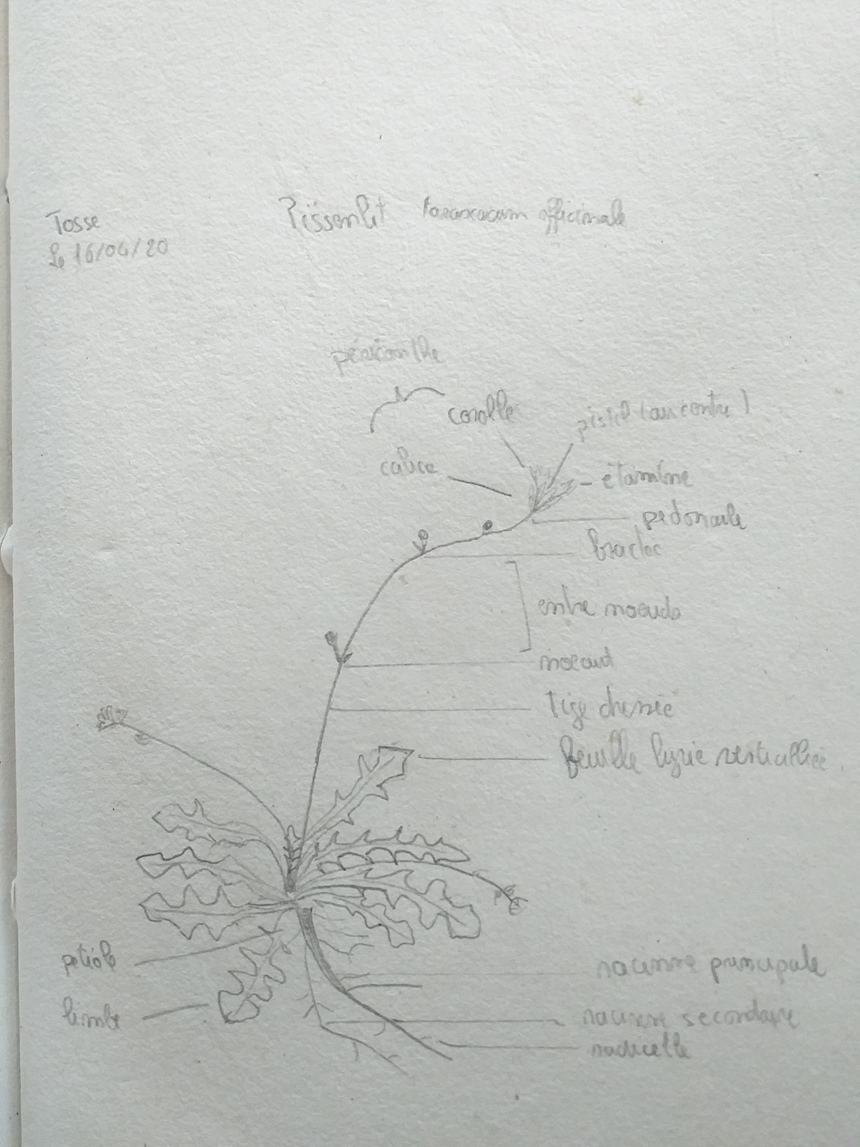 Tosse
Le 16/04/20
Pissenlit taraxacum officinale
périanthe
corolle
pistil (au centre)
calice
étamine
pedoncule
bractee
entre noeuds
noeud
Tige
feuille lyrée verticillée
petiole
limbe
racinne principale
racinne secondaire
radicelle